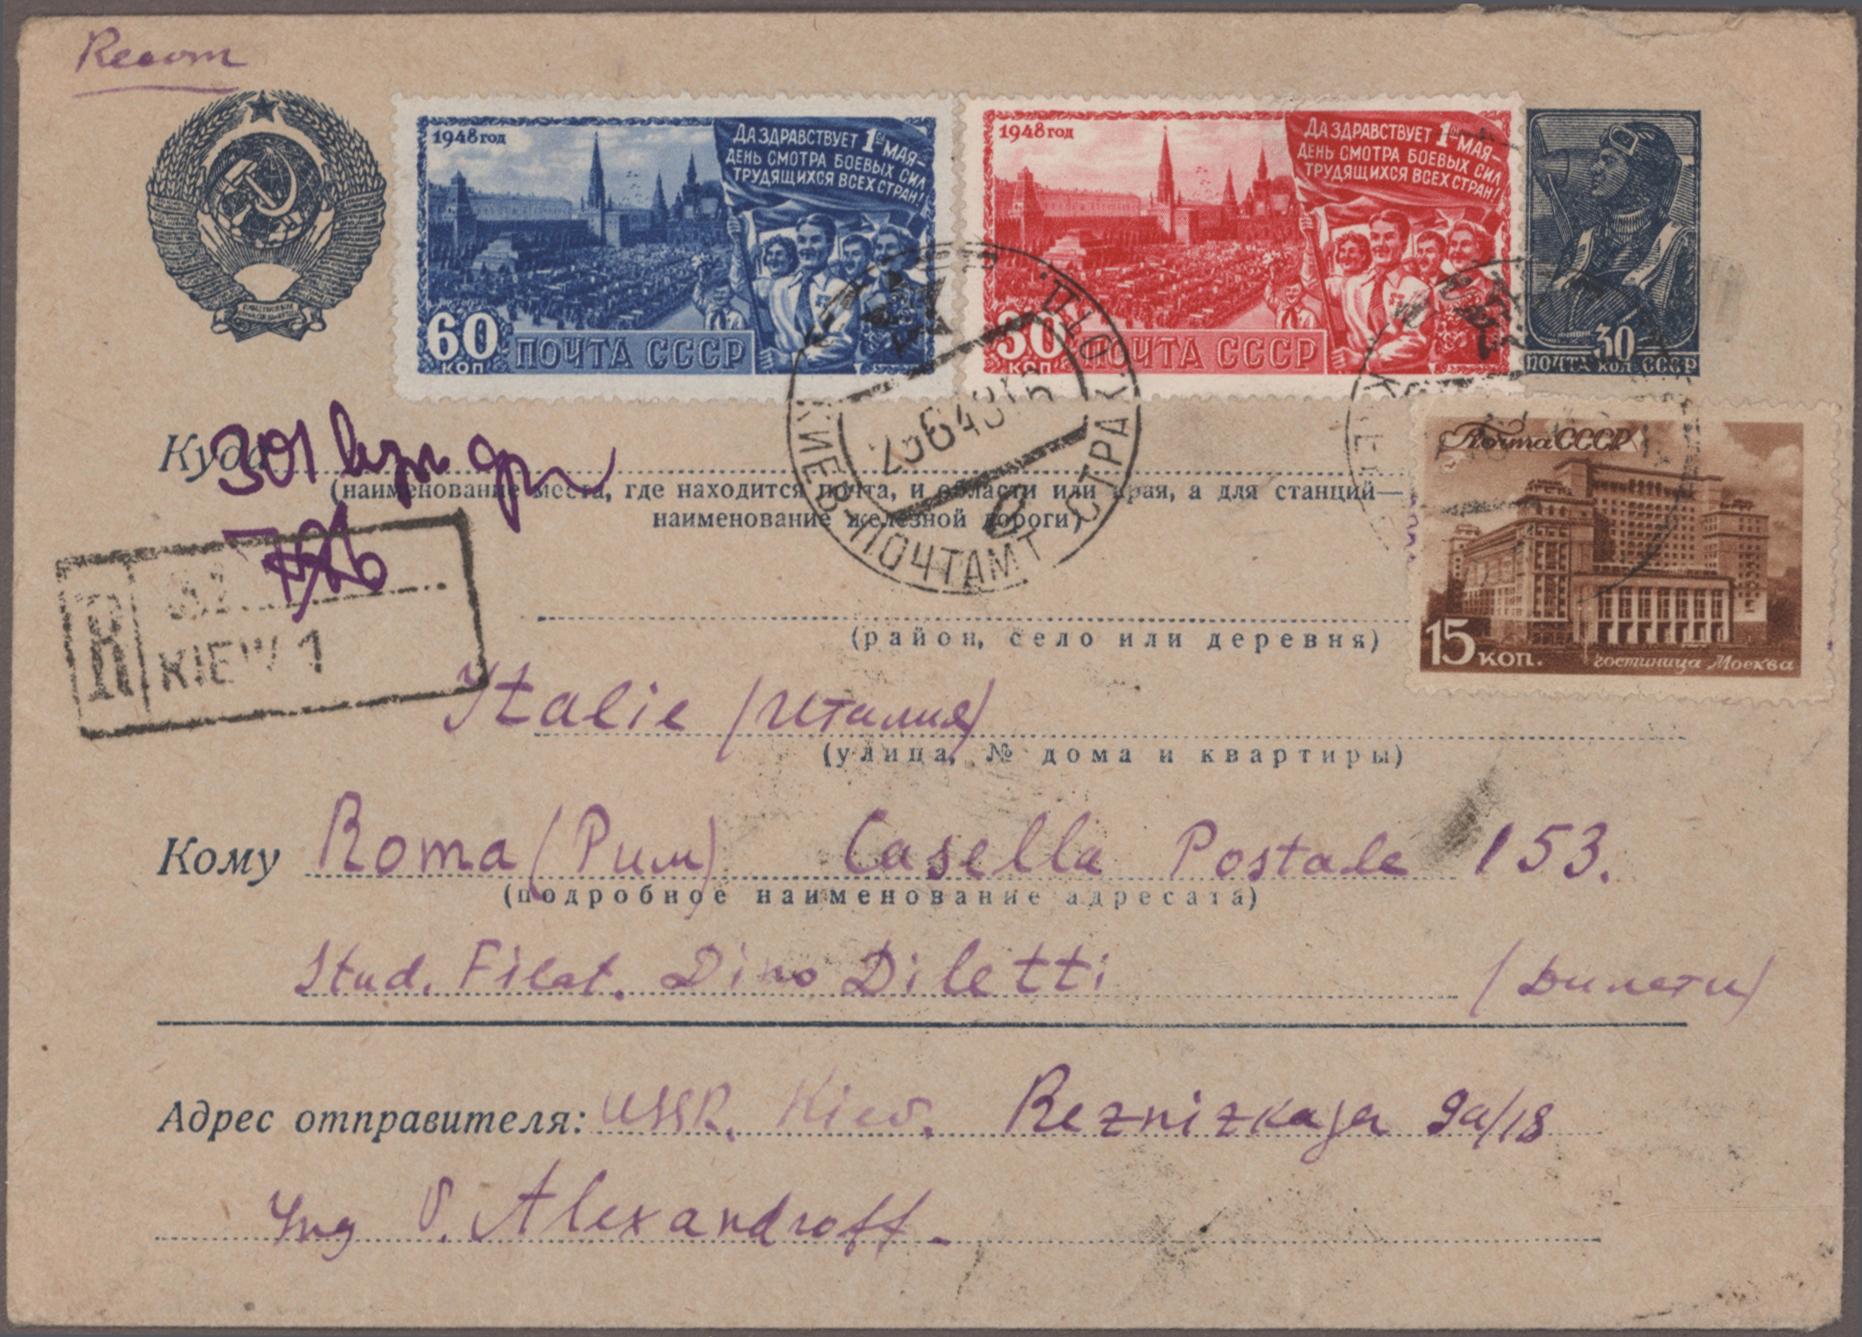 Recom
1948 год
ДА ЗДРАВСТВУЕТ 1ОЕ МАЯ—
ДЕНЬ СМОТРА БОЕВЫХ СИЛ
ТРУДЯЩИХСЯ ВСЕХ СТРАН!
60 КОП ПОЧТА СССР
1948 год
ДА ЗДРАВСТВУЕТ 1ОЕ МАЯ—
ДЕНЬ СМОТРА БОЕВЫХ СИЛ
ТРУДЯЩИХСЯ ВСЕХ СТРАН!
30 КОП ПОЧТА СССР
30
ПОЧТА КОП. СССР
КИЕВ-ПОЧТАМТ
Почта СССР
15 КОП. гостиница Москва
Куда 301
(наименование места, где находится почта, и области или края, а для станций—
наименование железной дороги)
R
KIEW 1
(район, село или деревня)
Italie (Италия)
(улица, № дома и квартиры)
Кому Roma (Рим) Casella Postale 153.
(подробное наименование адресата)
Stud. Filat. Dino Diletti (Дилети)
Адрес отправителя: USSR. Kiev. Reznizkaja 9a/18
Ing V. Alexandroff.